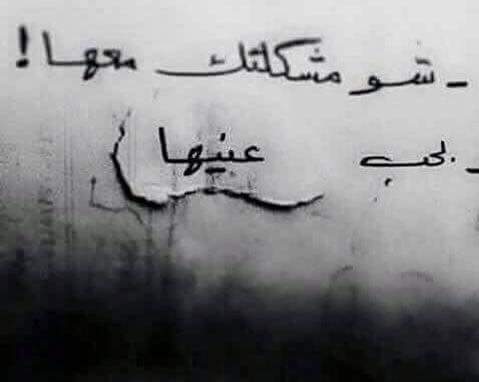 - شو مشكلتك معها!
- بحب عنيها